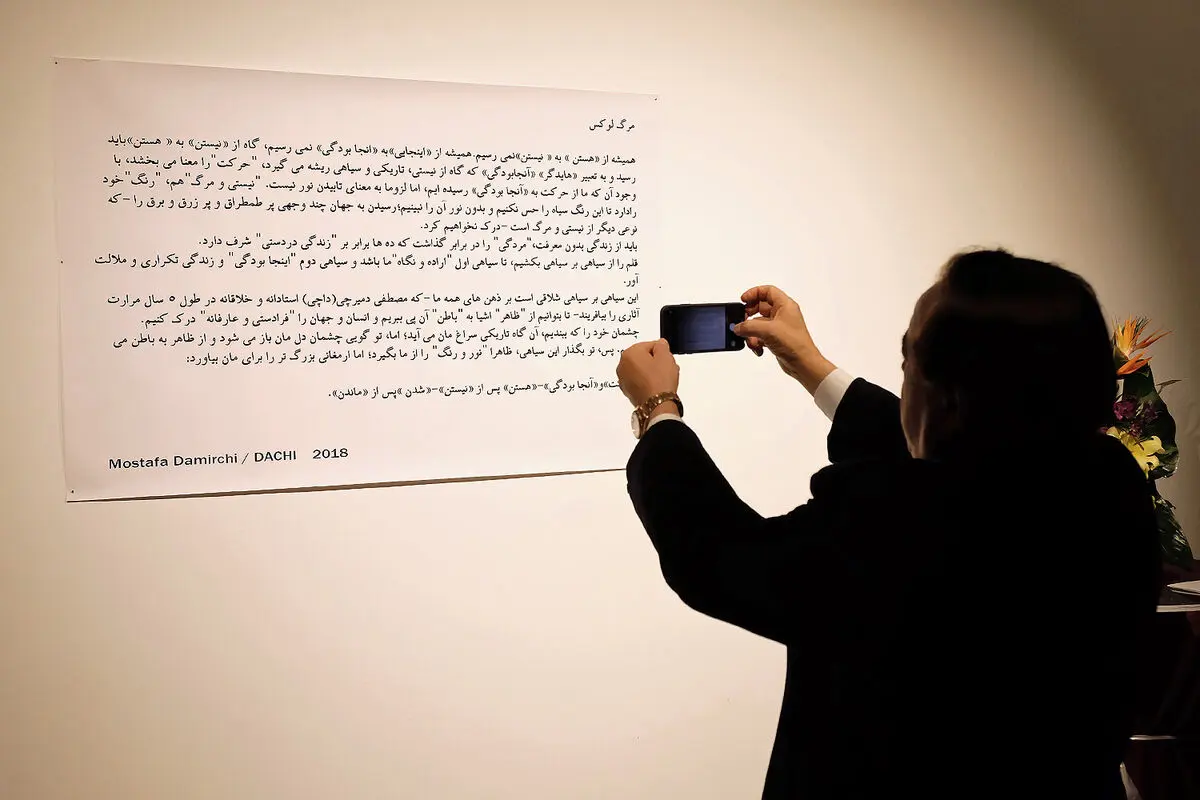 مرگ لوکس
همیشه از «هستن » به « نیستن»نمی رسیم.همیشه از «اینجایی»به «انجا بودگی» نمی رسیم، گاه از «نیستن» به « هستن»باید
رسید و به تعبیر «هایدگر» «آنجابودگی» که گاه از نیستی، تاریکی و سیاهی ریشه می گیرد، "حرکت"را معنا می بخشد، با
وجود آن که ما از حرکت به «آنجا بودگی» رسیده ایم، اما لزوما به معنای تابیدن نور نیست. "نیستی و مرگ"هم، "رنگ"خود
رادارد تا این رنگ سیاه را حس نکنیم و بدون نور آن را نبینیم؛رسیدن به جهان چند وجهی پر طمطراق و پر زرق و برق را –که
نوعی دیگر از نیستی و مرگ است –درک نخواهیم کرد.
باید از زندگی بدون معرفت،"مردگی" را در برابر گذاشت که ده ها برابر بر "زندگی دردستی" شرف دارد.
قلم را از سیاهی بر سیاهی بکشیم، تا سیاهی اول "اراده و نگاه"ما باشد و سیاهی دوم "اینجا بودگی" و زندگی تکراری و ملالت
آور.
این سیاهی بر سیاهی شلاقی است بر ذهن های همه ما –که مصطفی دمیرچی(داچی) استادانه و خلاقانه در طول ۵ سال مرارت
آثاری را بیافریند– تا بتوانیم از "ظاهر" اشیا به "باطن" آن پی ببریم و انسان و جهان را "فرادستی و عارفانه" درک کنیم.
چشمان خود را که ببندیم، آن گاه تاریکی سراغ مان می آید؛ اما، تو گویی چشمان دل مان باز می شود و از ظاهر به باطن می
پس، تو بگذار این سیاهی، ظاهرا "نور و رنگ" را از ما بگیرد؛ اما ارمغانی بزرگ تر را برای مان بیاورد:
و«آنجا بودگی»–«هستن» پس از «نیستن»–«شدن »پس از «ماندن».
Mostafa Damirchi / DACHI 2018